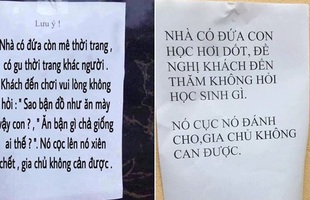 Lưu ý !
Nhà có đứa còn mê thời trang ,
có gu thời trang khác người .
Khách đến chơi vui lòng không
hỏi : " Sao bận đồ như ăn mày
vậy con ? , " Ăn bận gì chả giống
ai thế ? ". Nó cọc lên nó xiên
chết , gia chủ không cản được .
NHÀ CÓ ĐỨA CON
HỌC HƠI DỐT, ĐỀ
NGHỊ KHÁCH ĐẾN
THĂM KHÔNG HỎI
HỌC SINH GÌ.
NÓ CỤC NÓ ĐÁNH
CHO,GIA CHỦ KHÔNG
CAN ĐƯỢC.